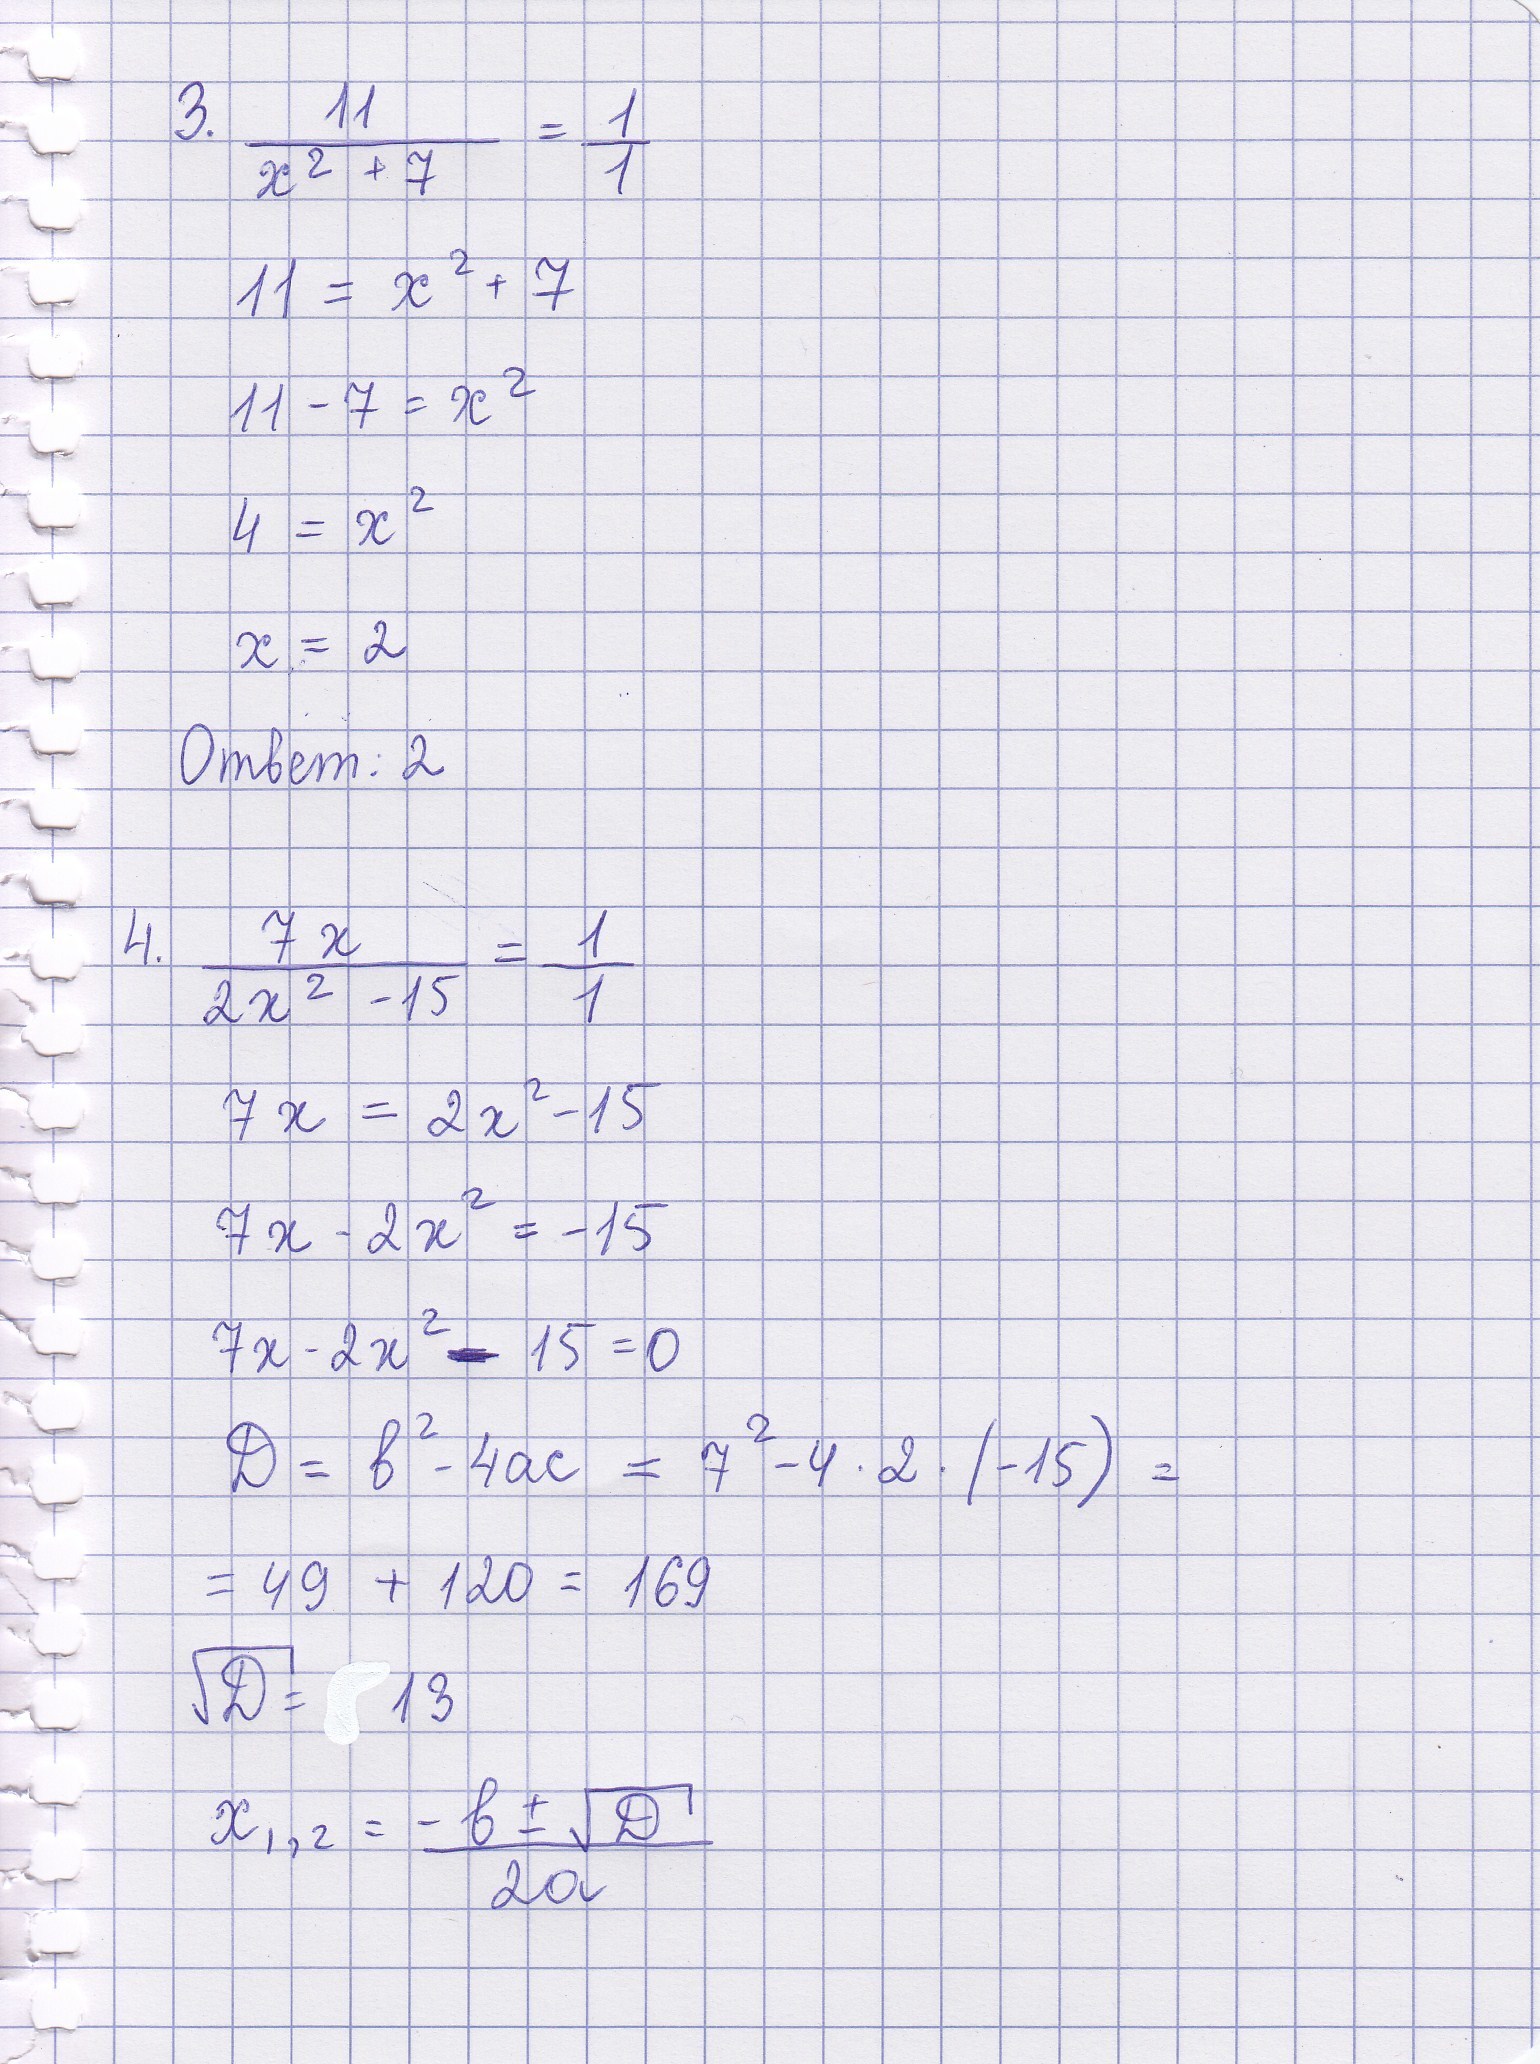 3. 11/(x² + 7) = 1/1
11 = x² + 7
11 - 7 = x²
4 = x²
x = 2
Ответ: 2
4. 7x/(2x² - 15) = 1/1
7x = 2x² - 15
7x - 2x² = -15
7x - 2x² - 15 = 0
D = b² - 4ac = 7² - 4 · 2 · (-15) =
= 49 + 120 = 169
√D = 13
x₁,₂ = (-b ± √D)/2a